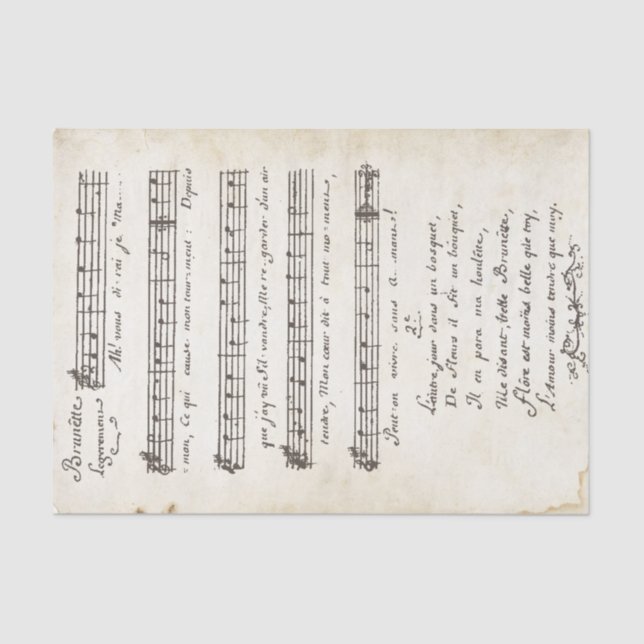 Brunêtte
Legerement
Ah! vous di-rai je "Ma......
=mon, Ce qui cause mon tour=ment: Depuis
que j'ay vû Sil=vandre, Me re=garder d'un air
tendre, Mon cœur dit à tout mo=ment,
Peut-on vivre sans A...mans!
2e
L'autre jour dans un bosquet,
De fleurs il fit un bouquet,
Il en para ma houlête,
Me disant, belle Brunêtte,
Flôre est moins belle que toy,
L'Amour moins tendre que moy.